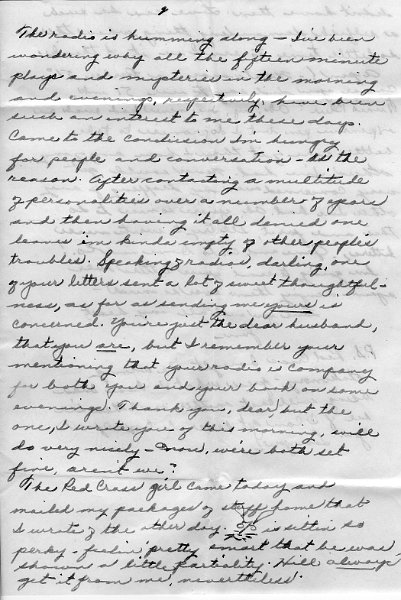 9
The radio is humming along - I've been
wondering why all the fifteen minute
plays and mysteries in the morning
and evenings, respectively, have been
such an interest to me these days.
Came to the conclusion I'm hungry
for people and conversation - is the
reason. After contacting a multitude
of personalities over a number of years
and then having it all denied one
leaves i'm kinda empty of other people's
troubles. Speaking of radios, darling, one
of your letters sent a lot of sweet thoughtful-
ness, as far as sending me yours is
concerned. You're just the dear husband,
that you are, but I remember your
mentioning that your radio is company
for both you and your book on some
evenings. Thank you, dear, but the
one, I wrote you of this morning, will
do very nicely - Now, we're both set
fine, aren't we?
The Red Cross girl came today and
mailed my packages of stuff home that
I wrote of the other day. is settin' so
perky - feelin' pretty smart that he was
shown a little partiality. He'll always
get it from me, nevertheless.